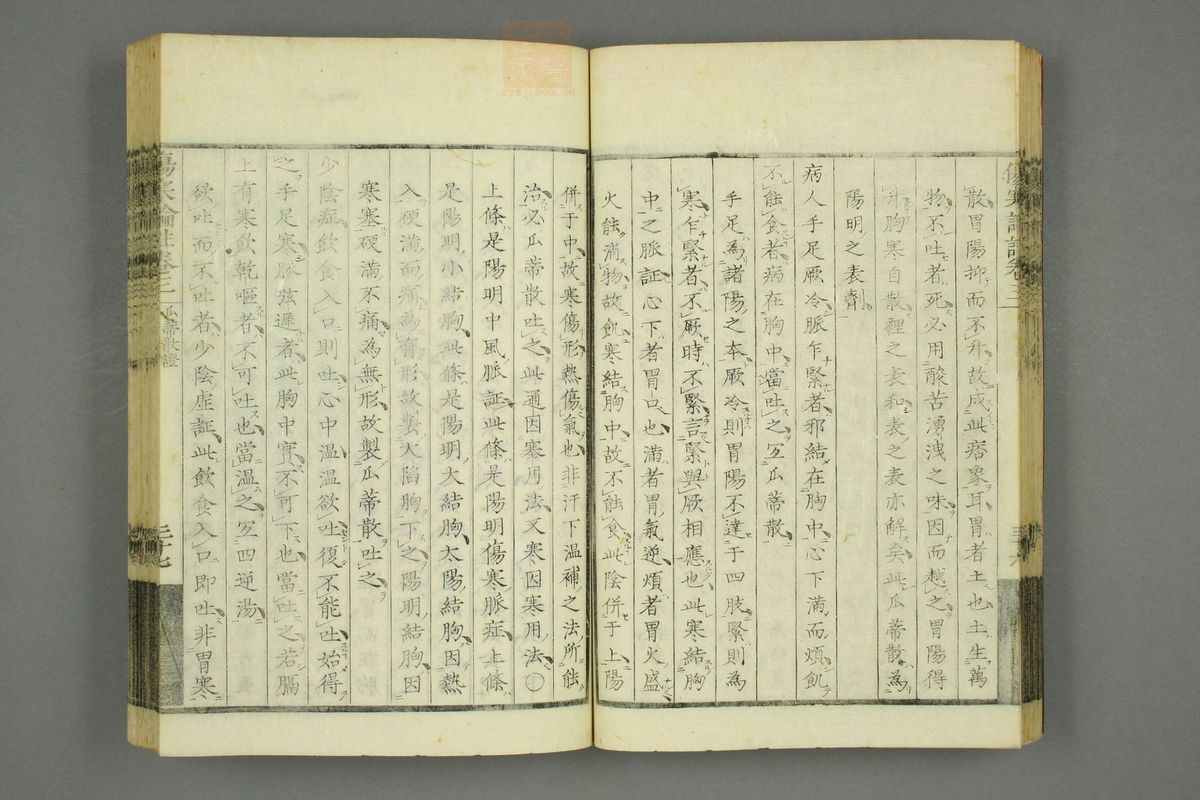 散胃陽抑而不升故成此痞象耳胃者土也土生萬
物不吐者死必用酸苦湧泄之味因而越之胃陽得
升胸寒自散裡之表和表之表亦解矣此瓜蒂散為
陽明之表劑
病人手足厥冷脈乍緊者邪結在胸中心下滿而煩飢
不能食者病在胸中當吐之宜瓜蒂散
手足為諸陽之本厥冷則胃陽不達于四肢緊則為
寒乍緊者不厥時不緊言緊與厥相應也此寒結胸
中之脈証心下者胃口也滿者胃氣逆煩者胃火盛
火能消物故飢寒結胸中故不能食此陰併于上陽
併于中故寒傷形熱傷氣也非汗下温補之法所能
治必瓜蒂散吐之此通因塞用法又寒因寒用法〇
上條是陽明中風脈証此條是陽明傷寒脈症上條
是陽明小結胸此條是陽明大結胸太陽結胸因熱
入硬滿而痛為有形故製大陷胸下之陽明結胸因
寒塞硬滿不痛為無形故製瓜蒂散吐之
少陰症飲食入口則吐心中温温欲吐復不能吐始得
之手足寒脈弦遲者此胸中實不可下也當吐之若膈
上有寒飲乾嘔者不可吐也當温之宜四逆湯
欲吐而不吐者少陰虛証此飲食入口即吐非胃寒
傷寒論註卷三
瓜蒂散證